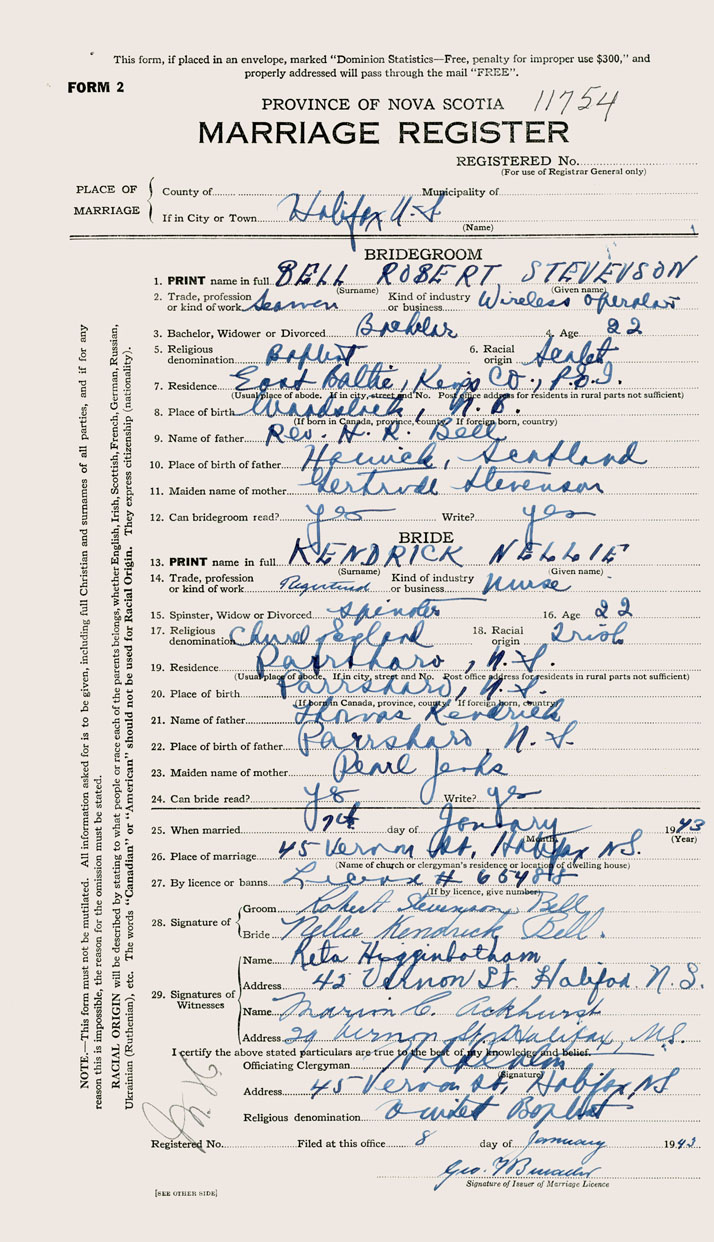 This form, if placed in an envelope, marked "Dominion Statistics—Free, penalty for improper use $300," and
properly addressed will pass through the mail "FREE".
FORM 2
PROVINCE OF NOVA SCOTIA 11754
MARRIAGE REGISTER
REGISTERED No.
(For use of Registrar General only)
PLACE OF MARRIAGE
County of Municipality of
If in City or Town Halifax N.S
(Name)
BRIDEGROOM
1. PRINT name in full BELL ROBERT STEVENSON
(Surname) (Given name)
2. Trade, profession or kind of work Seamen Kind of industry or business Wireless operator
3. Bachelor, Widower or Divorced Bachelor 4. Age 22
5. Religious denomination Baptist 6. Racial origin
7. Residence East Baltic, Kings Co., P.E.I.
(Usual place of abode. If in city, street and No. Post office address for residents in rural parts not sufficient)
8. Place of birth Woodstock, N.B.
(If born in Canada, province, county. If foreign born, country)
9. Name of father Rev. H. R. Bell
10. Place of birth of father Hawick, Scotland
11. Maiden name of mother Gertrude Stevenson
12. Can bridegroom read? yes Write? yes
BRIDE
13. PRINT name in full KENDRICK NELLIE
(Surname) (Given name)
14. Trade, profession or kind of work Registered Kind of industry or business Nurse
15. Spinster, Widow or Divorced Spinster 16. Age 22
17. Religious denomination Church England 18. Racial origin Irish
19. Residence Parrsboro, N.S.
(Usual place of abode. If in city, street and No. Post office address for residents in rural parts not sufficient)
20. Place of birth Parrsboro, N.S.
(If born in Canada, province, county. If foreign born, country)
21. Name of father Thomas Kendrick
22. Place of birth of father Parrsboro, N.S.
23. Maiden name of mother Pearl Jenks
24. Can bride read? yes Write? yes
25. When married 7th day of January 1943
(Month) (Year)
26. Place of marriage 45 Vernon St, Halifax N.S.
(Name of church or clergyman's residence or location of dwelling house)
27. By licence or banns License #
(If by licence, give number)
28. Signature of
Groom Robert Stevenson Bell
Bride Nellie Kendrick Bell.
29. Signatures of Witnesses
Name Reta Higginbotham
Address 45 Vernon St Halifax. N.S.
Name Marion C. Ackhurst
Address 29 Vernon St, Halifax, N.S.
I certify the above stated particulars are true to the best of my knowledge and belief.
Officiating Clergyman
(Signature)
Address 45 Vernon St, Halifax, NS
Religious denomination United Baptist
Registered No. Filed at this office 8 day of January 1943
Geo.
Signature of Issuer of Marriage Licence
[SEE OTHER SIDE]
NOTE.—This form must not be mutilated. All information asked for is to be given, including full Christian and surnames of all parties, and if for any
reason this is impossible, the reason for the omission must be stated.
RACIAL ORIGIN will be described by stating to what people or race each of the parents belongs, whether English, Irish, Scottish, French, German, Russian,
Ukrainian (Ruthenian), etc. The words "Canadian" or "American" should not be used for Racial Origin. They express citizenship (nationality).